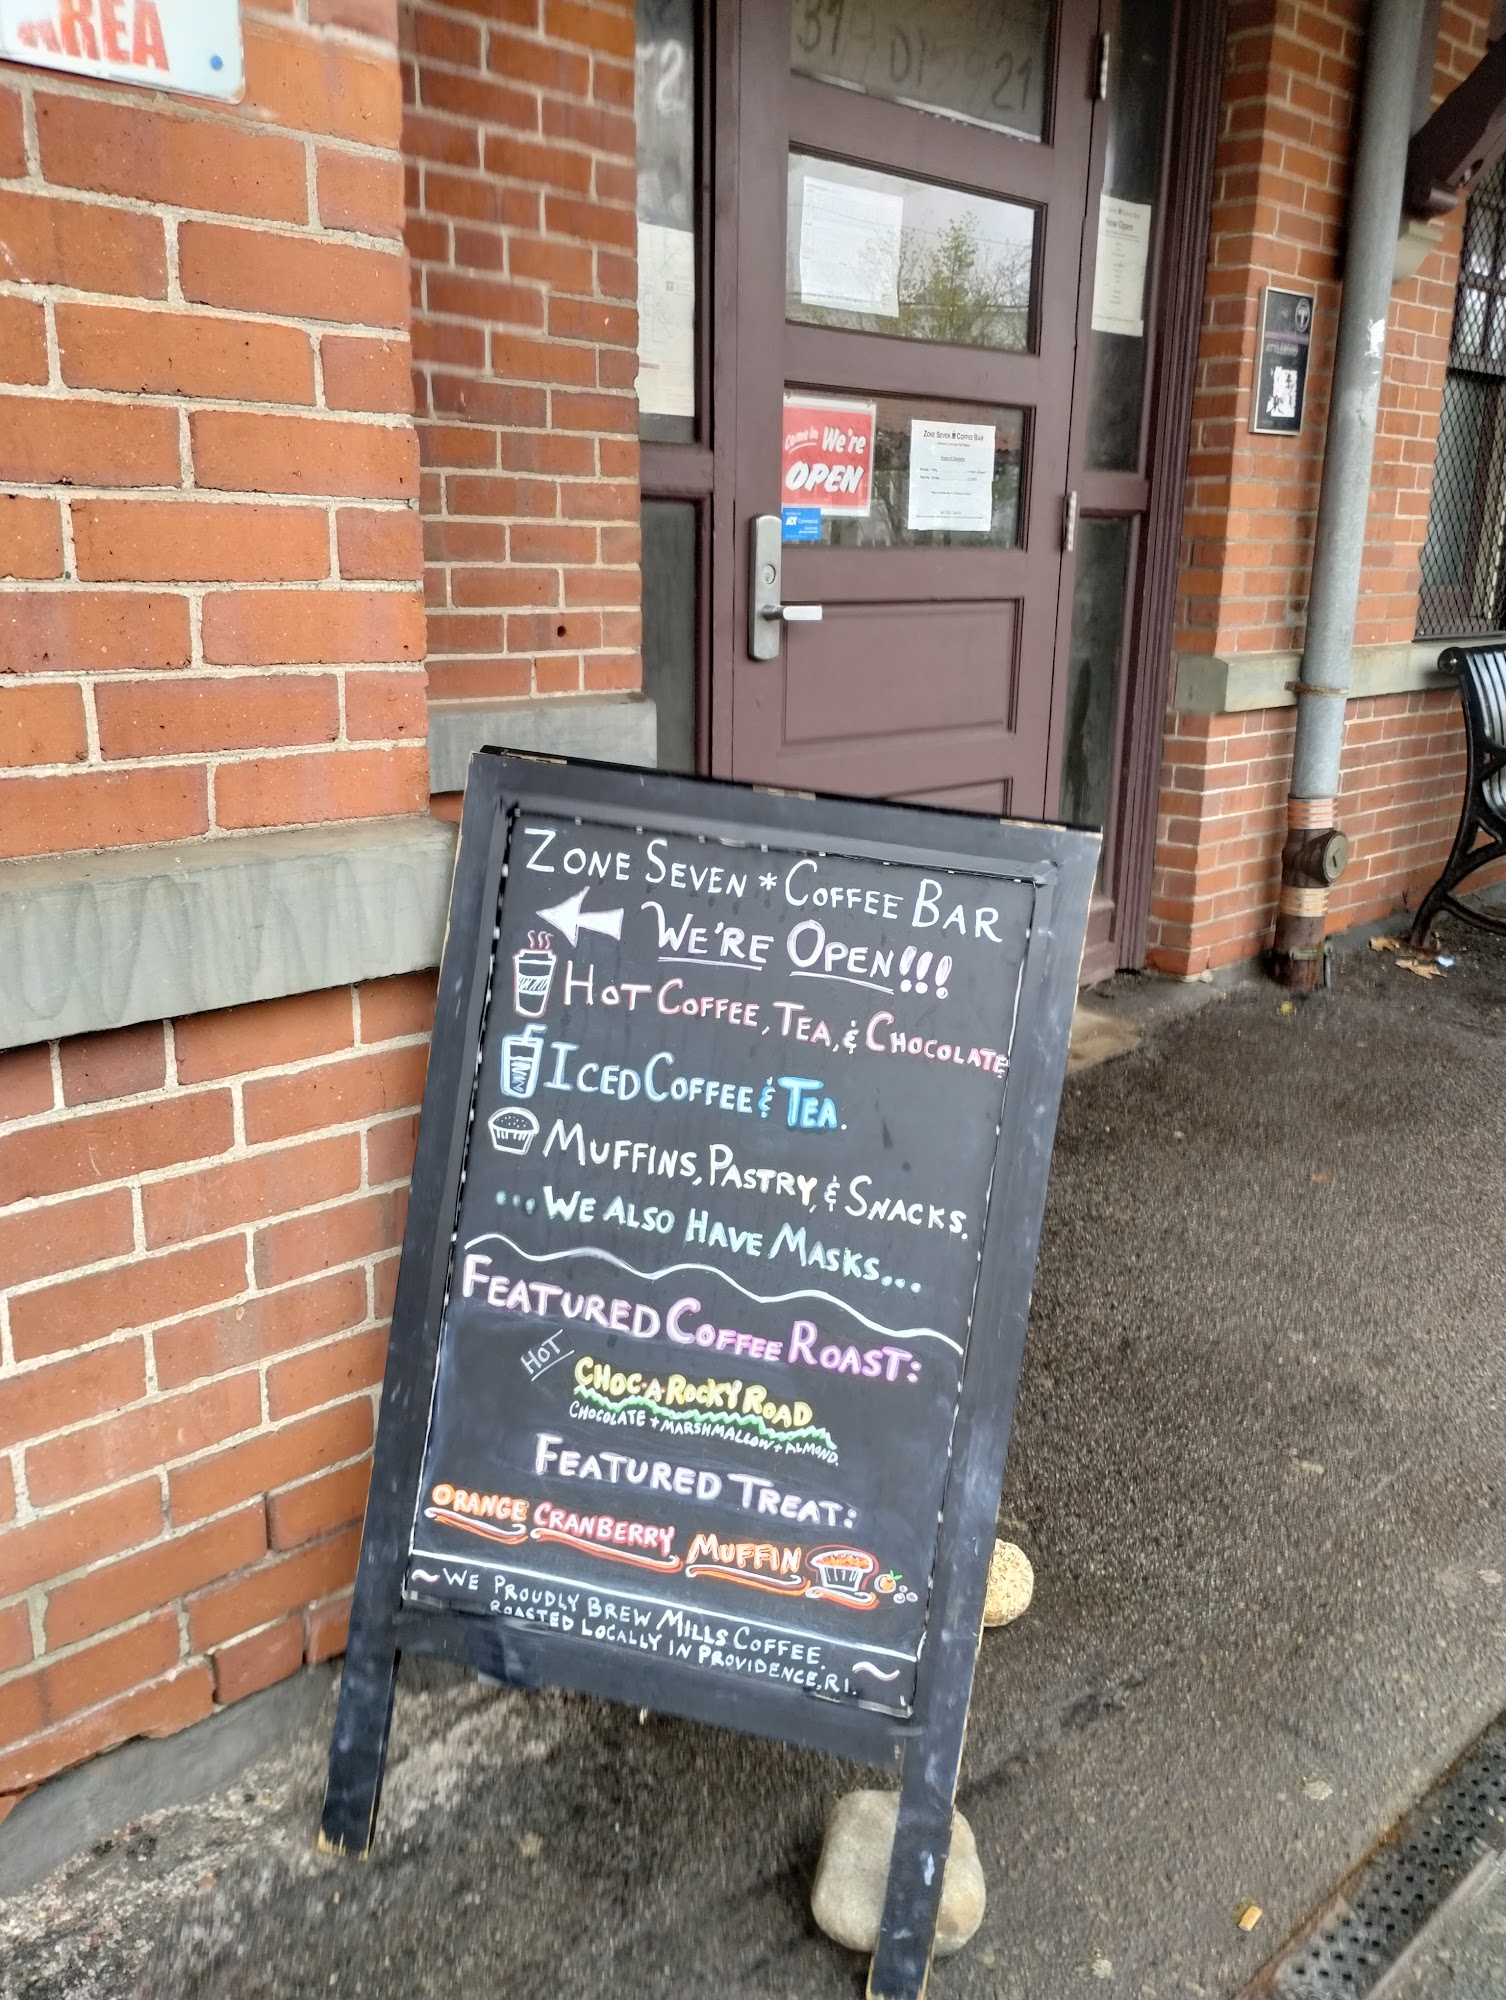 AREA
39 DI 29 21
Now Open
T
ATTLEBORO
Come in We're
OPEN
ADT Commercial
ZONE SEVEN COFFEE BAR
ZONE SEVEN * COFFEE BAR
WE'RE OPEN!!!
HOT COFFEE, TEA, & CHOCOLATE
ICED COFFEE & TEA.
MUFFINS, PASTRY, & SNACKS.
...WE ALSO HAVE MASKS...
FEATURED COFFEE ROAST:
HOT
CHOC-A-ROCKY ROAD
CHOCOLATE + MARSHMALLOW + ALMOND.
FEATURED TREAT:
ORANGE CRANBERRY MUFFIN
~WE PROUDLY BREW MILLS COFFEE.
ROASTED LOCALLY IN PROVIDENCE, RI.~